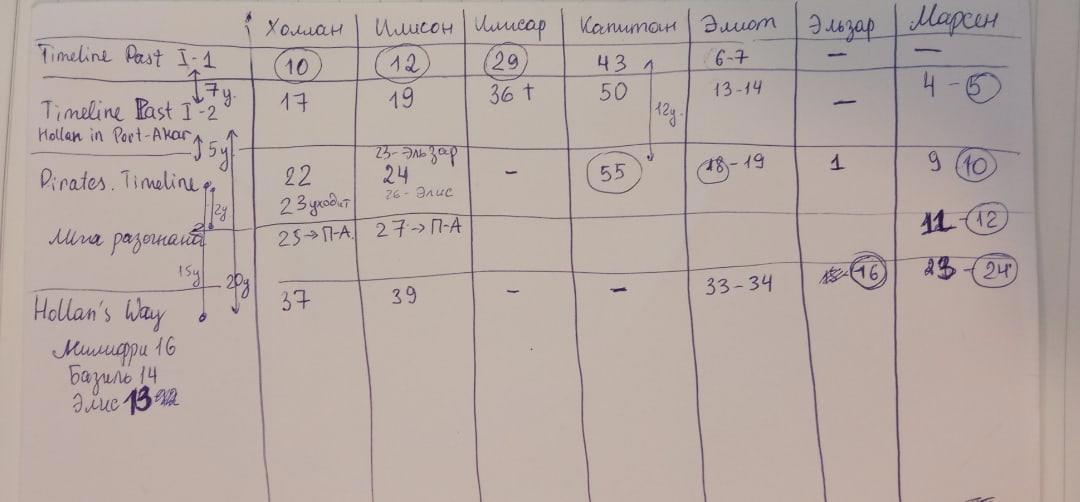 Холлан Илисон Илисар Капитан Элиот Эльзар Марсен
Timeline Past I-1 10 12 29 43 6-7 — —
7y. 12y.
Timeline Past I-2 17 19 36 † 50 13-14 — 4 - 5
Hollan in Port-Akar
5y
23-Эльзар
Pirates. Timeline 22 24 - 55 18-19 1 9 10
23 уходит 26 - Элис
2y
Лига разогнана 25→П-А. 27→П-А 11-12
15y 20y
Hollan's Way 37 39 - - 33-34 16 23-24
Милифри 16
Базиль 14
Элис 13